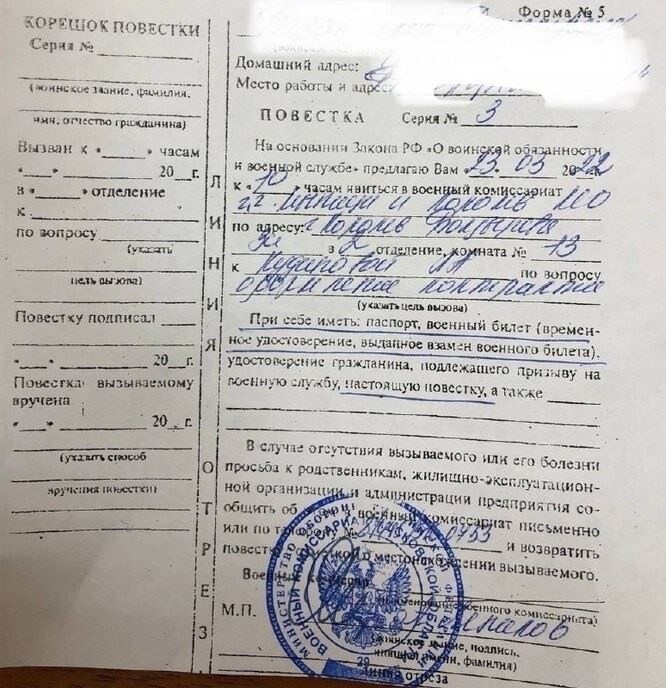 КОРЕШОК ПОВЕСТКИ
Серия №
(воинское звание, фамилия,
имя, отчество гражданина)
Вызван к «___» часам
«___» ______ 20__г.
в «___» отделение
к
по вопросу
(указать
цель вызова)
Повестку подписал
«___» ______ 20__г.
Повестка вызываемому
вручена
«___» ______ 20__г.
(указать способ
вручения повестки)
ЛИНИЯ ОТРЕЗ
Форма № 5
Домашний адрес:
Место работы и адрес
ПОВЕСТКА Серия № 3
На основании Закона РФ «О воинской обязанности
и военной службе» предлагаю Вам «23» 03 2022
к «10» часам явиться в военный комиссариат
и Королев МО
по адресу: г. Королев Болдырева
в 2 отделение, комната № 13
к по вопросу
оформление контракта
(указать цель вызова)
При себе иметь: паспорт, военный билет (времен-
ное удостоверение, выданное взамен военного билета),
удостоверение гражданина, подлежащего призыву на
военную службу, настоящую повестку, а также
В случае отсутствия вызываемого или его болезни
просьба к родственникам, жилищно-эксплуатацион-
ной организации и администрации предприятия со-
общить об военный комиссариат письменно
или по № 0753 и возвратить
повестку местонахождении вызываемого.
Военный комиссар
(наименование военного комиссариата)
М.П.
(воинское звание, подпись,
инициал имени, фамилия)
20
Линия отреза